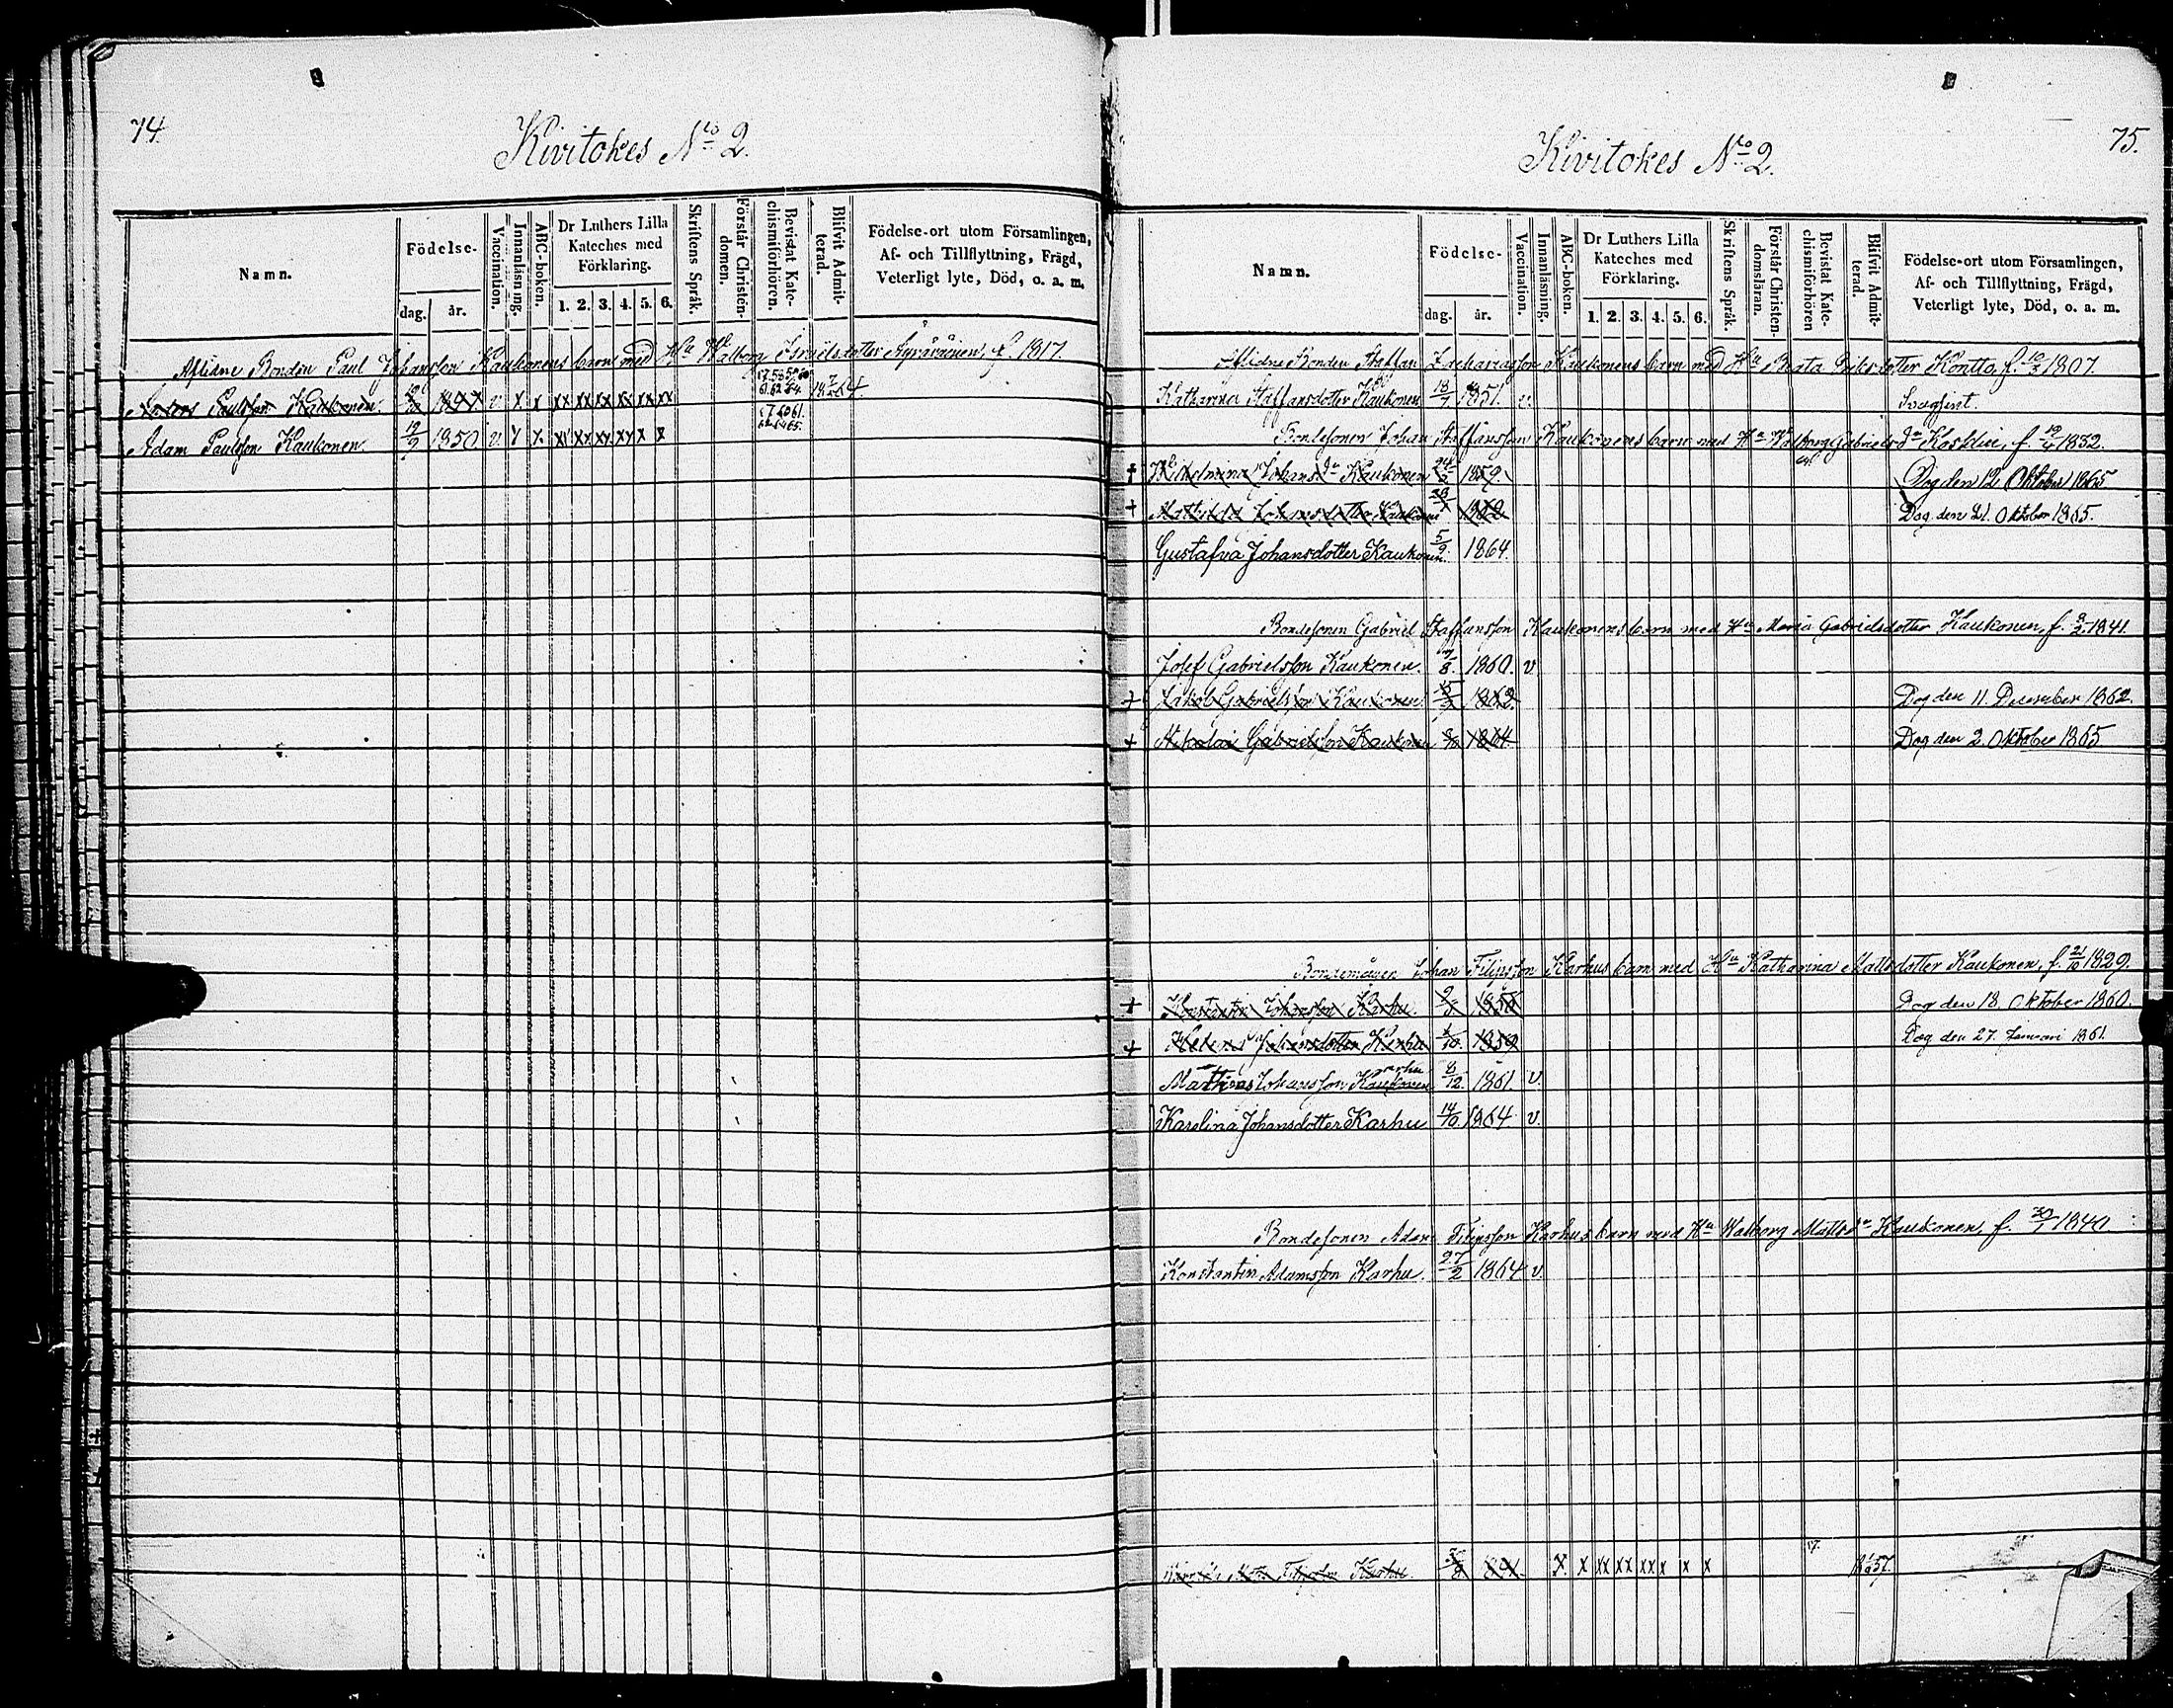 74.
Kivitokes No 2.
Namn.
Födelse-
dag.
år.
Vaccination.
Innanläsning.
ABC-boken.
Dr Luthers Lilla Kateches med Förklaring.
1. 2. 3. 4. 5. 6.
Skriftens Språk.
Förstår Christendomen.
Bevistat Katechismiförhören.
Blifvit Admitterad.
Födelse-ort utom Församlingen, Af- och Tillflyttning, Frägd, Veterligt lyte, Död, o. a. m.
Aflidne Bonden Paul Johansson Kaukonens barn med Hu Walborg Israelsdotter f. 1817.
Anders Paulsson Kaukonen. 1847 v x x xx xx xx xx xx xx
Adam Paulsson Kaukonen. 12/9 1850 v x x xx xx xx x x
75.
Kivitokes No 2.
Namn.
Födelse-
dag.
år.
Vaccination.
Innanläsning.
ABC-boken.
Dr Luthers Lilla Kateches med Förklaring.
1. 2. 3. 4. 5. 6.
Skriftens Språk.
Förstår Christendomsläran.
Bevistat Katechismiförhören
Blifvit Admitterad.
Födelse-ort utom Församlingen, Af- och Tillflyttning, Frägd, Veterligt lyte, Död, o. a. m.
Aflidne Bonden Staffan Zachariasson Kaukonens barn med Hu Beata Eriksdotter Kontto, f. 1807.
Katharina Staffansdotter Kaukonen 18/7 1851. v. Svagsint.
Bondesonen Johan Staffansson Kaukonens barn med Hu Walborg Gabrielsdr f. 1832.
+ Wilhelmina Johansdr Kaukonen 1859. Dog den 12 Oktober 1865
+ Mathilda Johansdotter Kaukonen 1862 Dog den 21. Oktober 1865.
Gustafva Johansdotter Kaukonen 5/9. 1864.
Bondesonen Gabriel Staffansson Kaukonens barn med Hu Maria Gabrielsdotter Kaukonen, f. 1841.
Josef Gabrielsson Kaukonen. 1860. v
+ Jakob Gabrielsson Kaukonen 1862. Dog den 11. December 1862.
+ Nikolai Gabrielsson Kaukonen 1864 Dog den 2. Oktober 1865
Bondemågen Johan Filipsson Karhus barn med Hu Katharina Mattsdotter Kaukonen, f. 21/10 1829.
+ Konstantin Johansson Karhu. Dog den 18. Oktober 1860.
+ Helena Johansdotter Karhu 1/10. 1859 Dog den 27. Januari 1861.
Mathias Johansson Kaukonen arhu 8/12. 1861 v.
Karolina Johansdotter Karhu 14/10. 1864 v.
Bondesonen Adam Filipsson Karhus barn med Hu Walborg Mattsdr Kaukonen, f. 30/1 1840
Konstantin Adamsson Karhu. 27/2 1864 v.
Filipsson Karhu. x x xx xx xx x x x